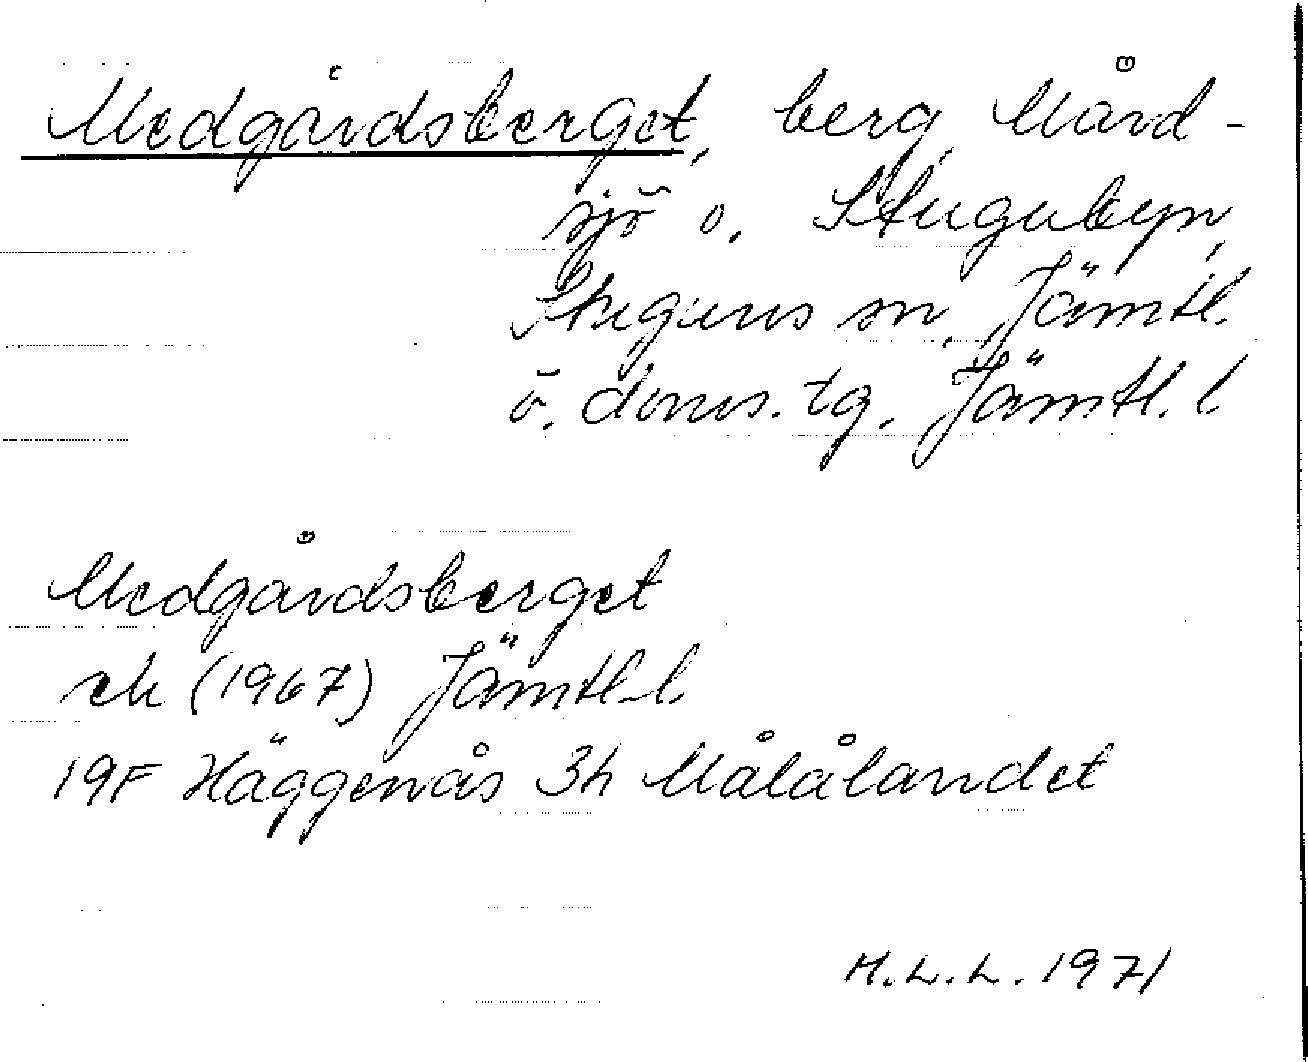 Medgårdsberget, berg, Mård-
sjö o. Stugubyn,
Stuguns sn, Jämtl.
ö. doms. tg, Jämtl. l
Medgårdsberget
ek (1967) Jämtl. l.
19F Häggenås 3h Målålandet
M.L.L. 1971